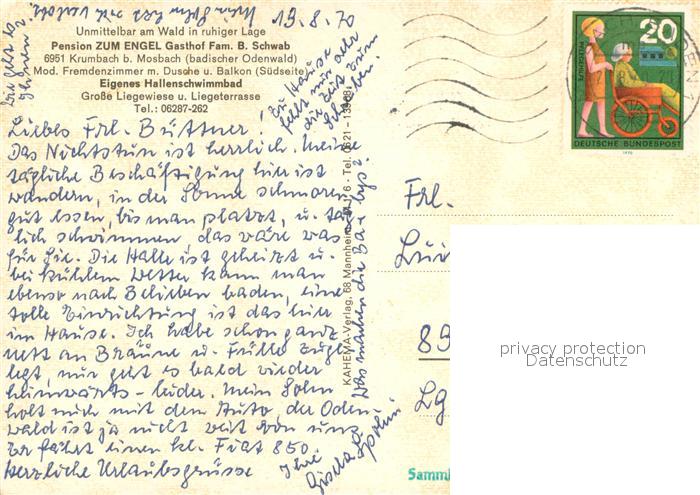 19.8.70
Unmittelbar am Wald in ruhiger Lage
Pension ZUM ENGEL Gasthof Fam. B. Schwab
6951 Krumbach b. Mosbach (badischer Odenwald)
Mod. Fremdenzimmer m. Dusche u. Balkon (Südseite)
Eigenes Hallenschwimmbad
Große Liegewiese u. Liegeterrasse
Tel.: 06287-262
Liebes Frl. Büttner!
Das Nichtstun ist herrlich. Meine
tägliche Beschäftigung hier ist
wandern, in der Sonne schmoren
gut essen, bis man platzt, u. täg
lich schwimmen, das wäre was
für Sie. Die Halle ist geheizt u.
bei kühlem Wetter kann man
ebenso nach Belieben baden, eine
tolle Einrichtung ist das hier
im Hause. Ich habe schon ganz
nett an Bräune u. Fülle zuge
legt, nur geht es bald wieder
heimwärts - leider. Mein Sohn
holt mich mit dem Auto, der Oden
wald ist ja nicht weit von uns
Er fährt einen kl. Fiat 850.
Herzliche Urlaubsgrüsse
Ihre
Gisela
Zu Hause
fehlt mir sehr
die Zeit zum
Schreiben.
Was machen die Bax bys?
Wie geht es
Ihnen?
KAHEMA-Verlag, 68 Mannheim
Tel. 0621
20
PFLEGEHILFE
DEUTSCHE BUNDESPOST
1970
Frl.
89
Lg
Samml
privacy protection
Datenschutz